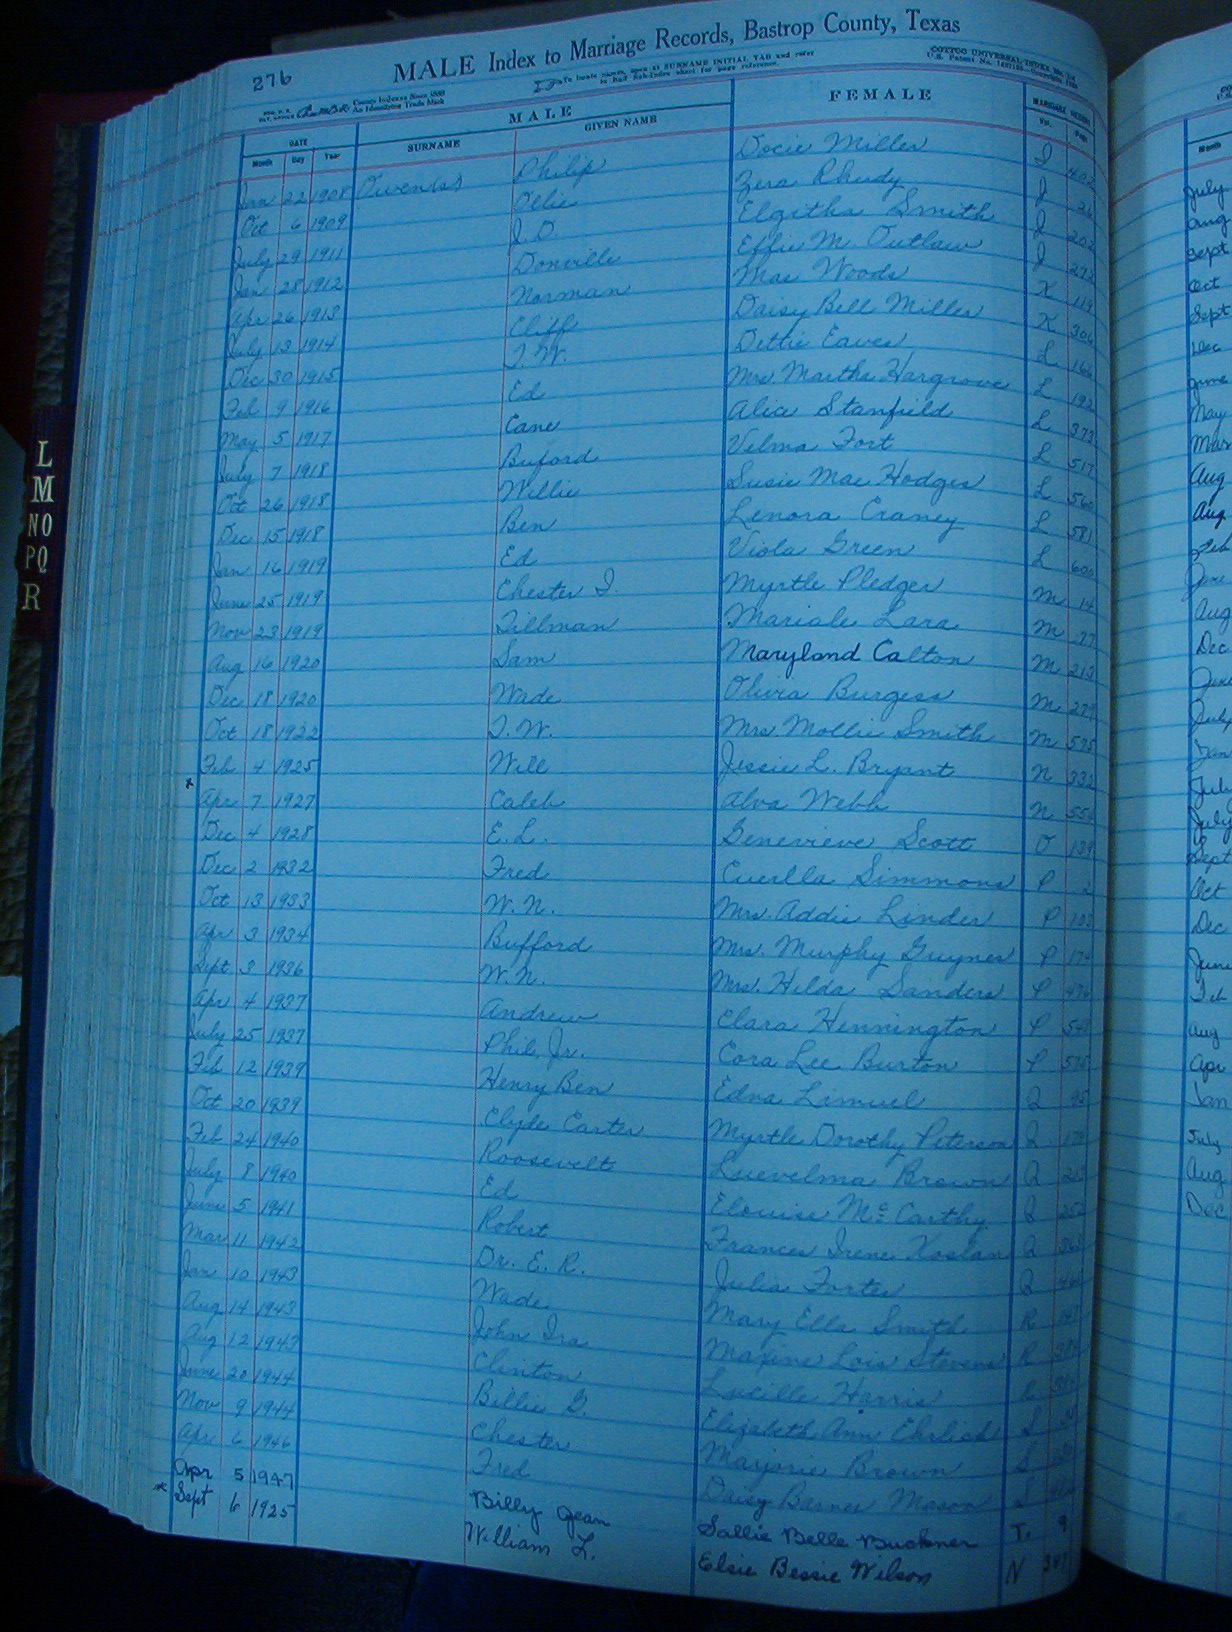 276 MALE Index to Marriage Records, Bastrop County, Texas
To locate Names, open at SURNAME INITIAL TAB and refer
to half Sub-Index sheet for page reference.
COTTOS UNIVERSAL INDEX
County Indexes Since 1888
An Identifying Trade Mark
MALE FEMALE MARRIAGE RECORD
DATE SURNAME GIVEN NAME Vol. Page
Month Day Year
Jan 22 1908 Owen(s) Philip Docie Miller I 402
Oct 6 1909 Ollie Zera Rhudy J 26
July 29 1911 J. D. Elgitha Smith J 202
Jan 28 1912 Donville Effie M. Outlaw J 273
Apr 26 1913 Norman Mae Woods K 119
July 13 1914 Cliff Daisy Bell Miller K 306
Dec 30 1915 T. W. Dettie Eaves L 166
Feb 9 1916 Ed Mrs. Martha Hargrove L 192
May 5 1917 Cane Alice Stanfield L 373
July 7 1918 Buford Velma Fort L 517
Oct 26 1918 Willie Susie Mae Hodges L 560
Dec 15 1918 Ben Lenora Craney L 581
Jan 16 1919 Ed Viola Green L 600
June 25 1919 Chester I. Myrtle Pledger M 14
Nov 23 1919 Tillman Mariale Lara M 77
Aug 16 1920 Sam Maryland Calton M 213
Dec 18 1920 Wade Olivia Burgess M 279
Oct 18 1922 T. W. Mrs. Mollie Smith M 575
Feb 4 1925 Will Jessie L. Bryant N 332
x Apr 7 1927 Caleb Alva Webb N 554
Dec 4 1928 E. L. Genevieve Scott O 139
Dec 2 1932 Fred Euella Simmons P 2
Oct 13 1933 W. N. Mrs. Addie Linder P 103
Apr 3 1934 Bufford Mrs. Murphy Guynes P 174
Sept 3 1936 W. N. Mrs. Hilda Sanders P 476
Apr 4 1937 Andrew Clara Hennington P
July 25 1937 Phil, Jr. Cora Lee Burton P 575
Feb 12 1939 Henry Ben Edna Limuel Q 95
Oct 20 1939 Clyde Carter Myrtle Dorothy Peterson Q
Feb 24 1940 Roosevelt Luevelma Brown Q
July 8 1940 Ed Elouise McCarthy Q
June 5 1941 Robert Frances Irene Kaslan Q
Mar 11 1942 Dr. E. R. Julia Forter Q
Jan 10 1943 Wade Mary Ella Smith R
Aug 14 1943 John Ira Maxine Lois Stevens R
Aug 12 1943 Clinton Lucille Harris R
June 20 1944 Billie G. Elizabeth Ann Ehrlich S
Nov 9 1944 Chester Marjorie Brown S
Apr 6 1946 Fred Daisy Barnes Mason S
Apr 5 1947 Billy Jean Sallie Belle Buckner T. 9
x Sept 6 1925 William L. Elsie Bessie Wilson N
L
M
NO
PQ
R
Month
July
Aug
Sept
Oct
Sept
Dec
June
May
Mar
Aug
Aug
Feb
Jan
Aug
Dec
June
July
Jan
July
July
Sept
Oct
Dec
June
Feb
Aug
Apr
Jan
July
Aug
Dec